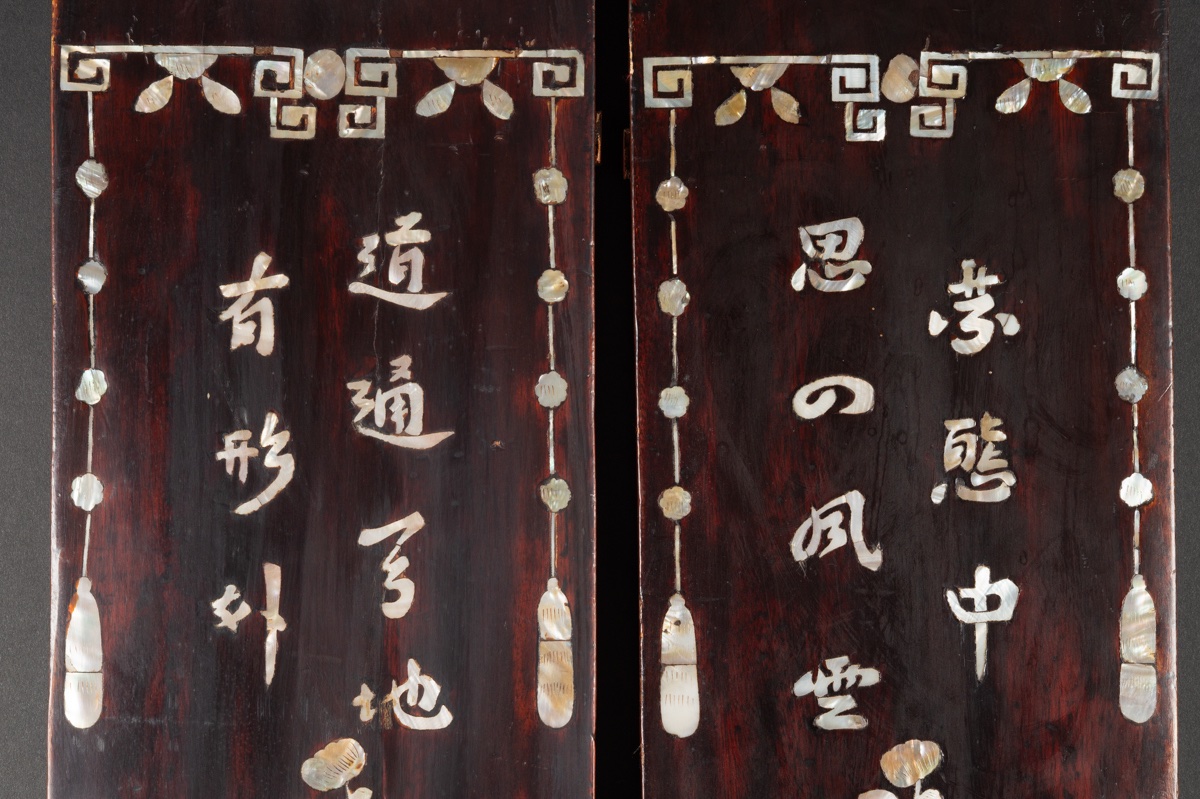 道通天地
有形外
思入風雲
變態中